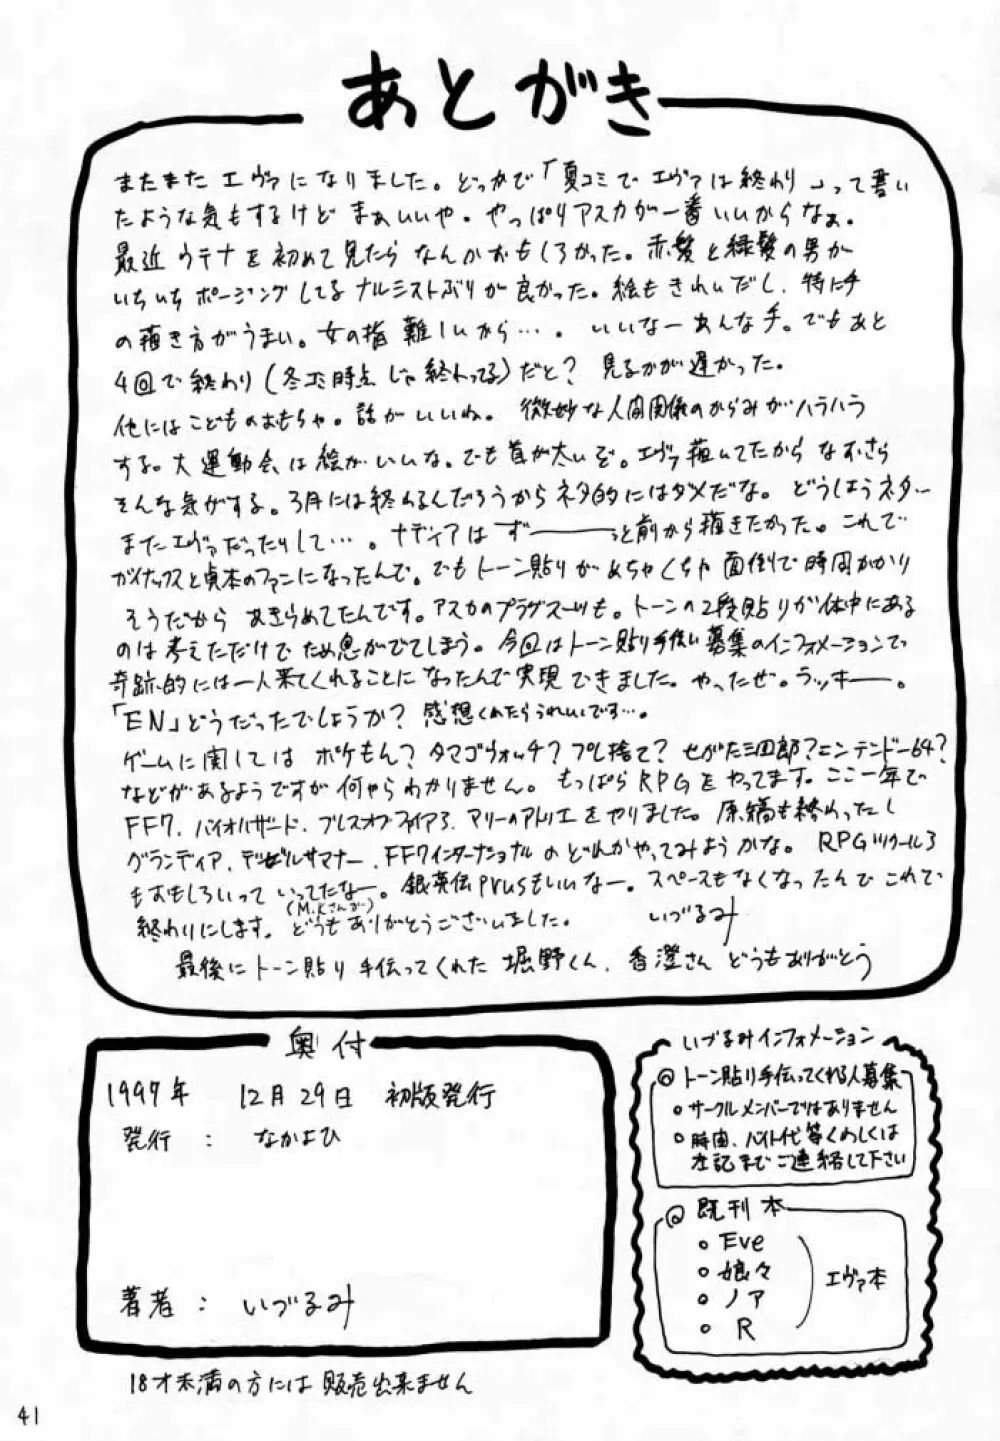 あとがき
またまたエヴァになりました。どっかで「夏コミでエヴァは終わり」って書い
たような気もするけど まぁいいや。やっぱりアスカが一番いいからなぁ。
最近ウテナを初めて見たらなんかおもしろかった。赤髪と緑髪の男が
いちいちポージングしてるナルシストぶりが良かった。絵もきれいだし、特に手
の描き方がうまい。女の指難しいから…。いいなーあんな手。でもあと
4回で終わり(冬コミ時点じゃ終わってる)だと？ 見るのが遅かった。
他にはこどものおもちゃ。話がいいね。微妙な人間関係のからみがハラハラ
する。大運動会は絵がいいな。でも首が太いぞ。エヴァ描いてたからなおさら
そんな気がする。3月には終わるんだろうからネタ的にはダメだな。どうしようネタ…
またエヴァだったりして…。ナディアはずーーーっと前から描きたかった。これで
ガイナックスと貞本のファンになったんで。でもトーン貼りがめちゃくちゃ面倒で時間かかり
そうだからあきらめてたんです。アスカのプラグスーツも。トーンの2段貼りが体中にある
のは考えただけでため息がでてしまう。今回はトーン貼り手伝い募集のインフォメーションで
奇跡的には一人来てくれることになったんで実現できました。やったぜ。ラッキー。
「EN」どうだったでしょうか？ 感想くれたらうれしいです…。
ゲームに関してはポケもん？タマゴウォッチ？プレ捨て？せがた三四郎？ニンテンドー64？
などがあるようですが何やらわかりません。もっぱらRPGをやってます。ここ一年で
FF7、バイオハザード、ブレスオブファイア3、マリーのアトリエをやりました。原稿も終わったし
グランディア、デビルサマナー、FF7インターナショナルのどれかやってみようかな。RPGツクール3
もおもしろいっていってたなー。銀英伝plusもいいなー。スペースもなくなったんでこれで
(M.Kさんが)
終わりにします。どうもありがとうございました。 いづるみ
最後にトーン貼り手伝ってくれた堀野くん、香澄さんどうもありがとう
奥付
1997年 12月29日 初版発行
発行： なかよひ
著者： いづるみ
18才未満の方には販売出来ません
いづるみインフォメーション
◎トーン貼り手伝ってくれる人募集
・サークルメンバーではありません
・時間、バイト代等くわしくは
左記までご連絡して下さい
◎既刊本
・Eve
・娘々
・ノア
・R
エヴァ本
41